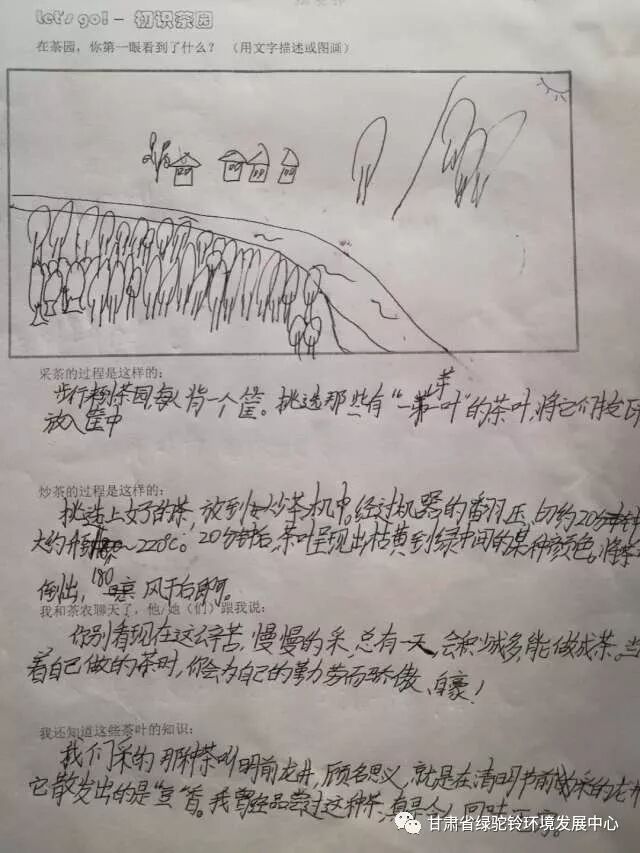 Let's go! - 初识茶园
在茶园，你第一眼看到了什么？（用文字描述或图画）
采茶的过程是这样的：
步行来到茶园，每人背一个筐。挑选那些有“一芽一叶”的茶叶，将它们
放入筐中
炒茶的过程是这样的：
挑选上好的茶，放到炒茶机中。经过机器的翻、压、约20分钟
大约 180 ~220℃。20分钟后，茶叶呈现出枯黄到绿中间的某种颜色。将茶
倒出，风干后即可。
我和茶农聊天了，他/她（们）跟我说：
你别看现在这么辛苦，慢慢的采，总有一天，会积少成多，能做成茶。当
着自己做的茶时，你会为自己的勤劳而骄傲、自豪！
我还知道这些茶叶的知识：
我们采的那种茶叫明前龙井，顾名思义，就是在清明节前采的龙井
它散发出的是“豆”香。我曾经品尝过这种茶，真是令人回味
甘肃省绿驼铃环境发展中心